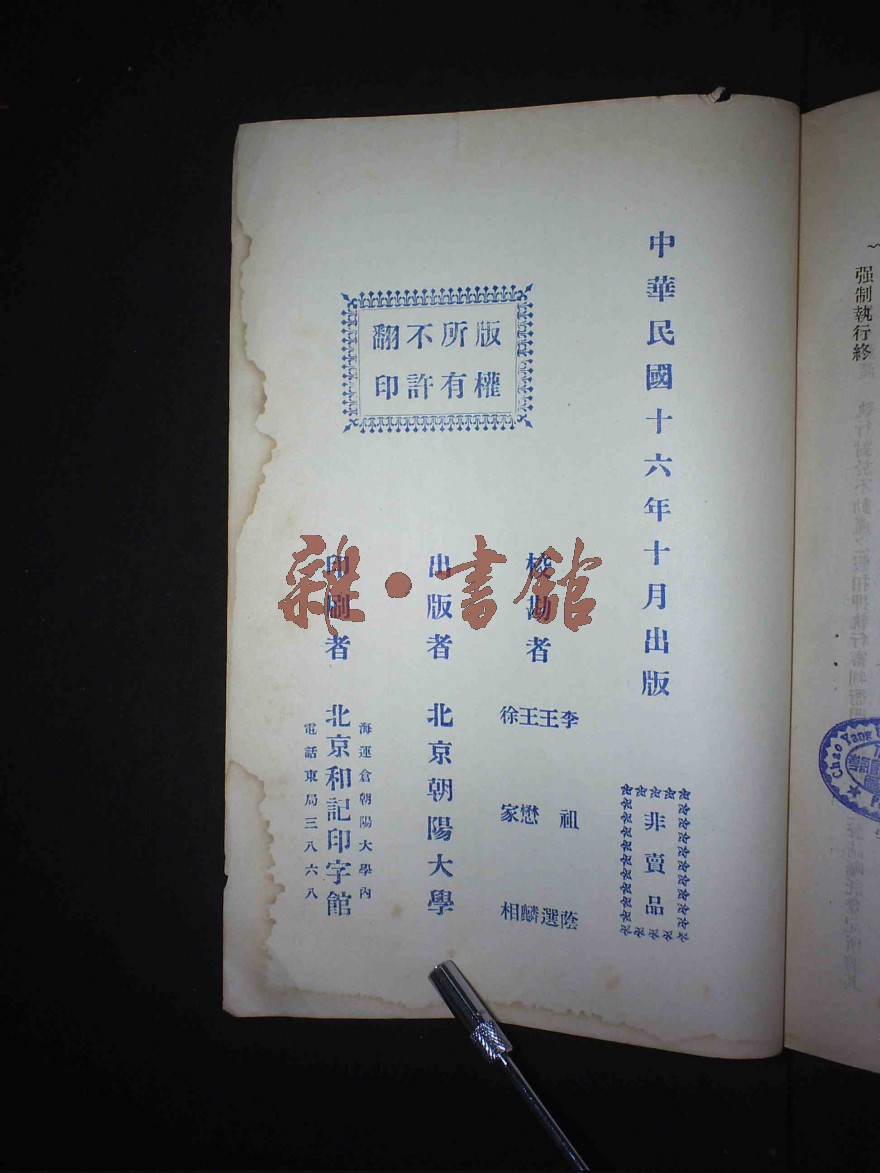 强制執行終
Chao Yang
中華民國十六年十月出版
非賣品
版權
所有
不許
翻印
校勘者
李祖蔭
王選
王懋麟
徐家相
出版者 北京朝陽大學
印刷者 北京和記印字館
海運倉朝陽大學內
電話東局三八六八
雜·書館